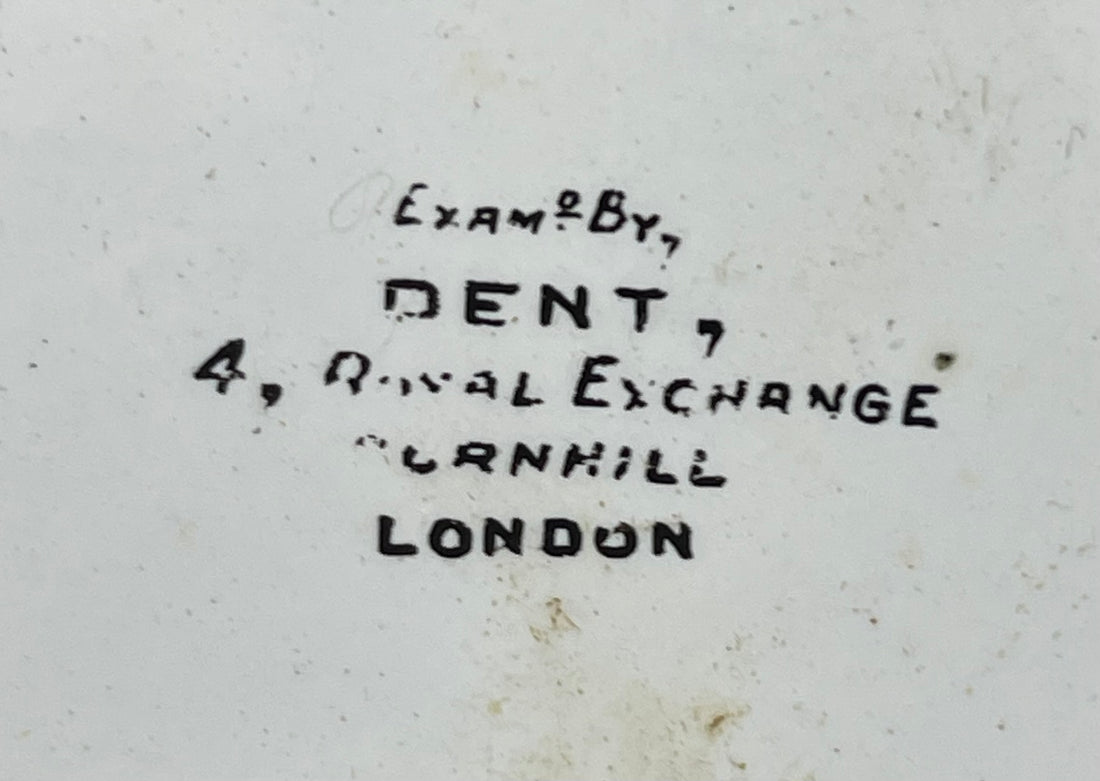 Examᴅ By,
DENT,
4, Royal Exchange
CORNHILL
LONDON